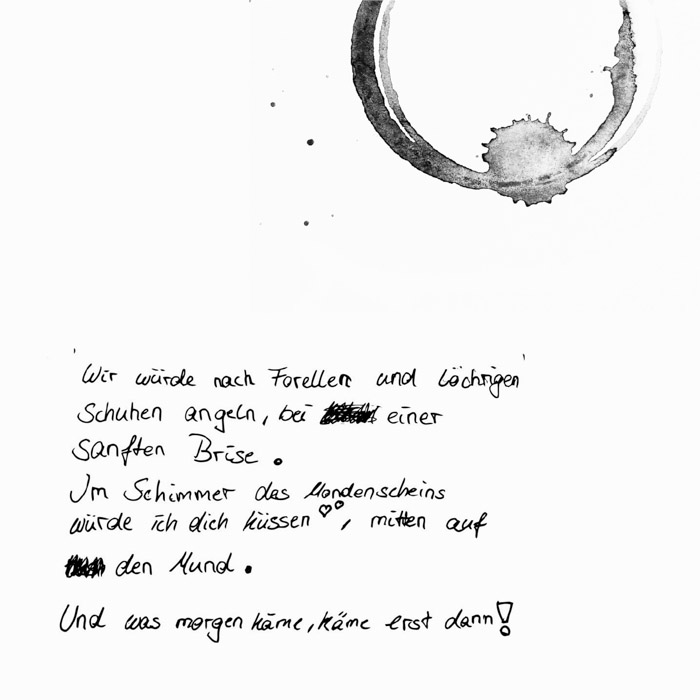 Wir würde nach Forellen und löchrigen
Schuhen angeln, bei einer
sanften Brise.
Im Schimmer das Mondenscheins
würde ich dich küssen♡♡, mitten auf
den Mund.
Und was morgen käme, käme erst dann!